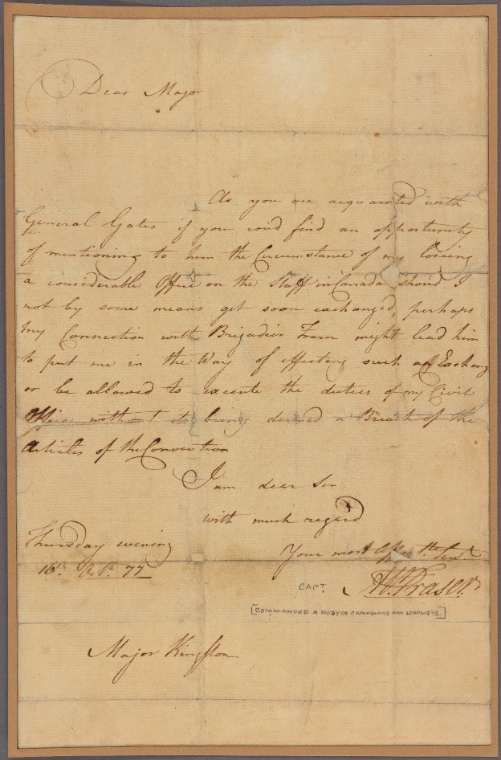 Dear Major
As you are acquainted with
General Gates if you cou'd find an opportunity
of mentioning to him the Circumstance of my loosing
a considerable Office on the Staff in Canada should I
not by some means get soon exchanged, perhaps
my Connection with Brigadier Fraser might lead him
to put me in the Way of effecting such an Exchange
or be allowed to execute the duties of my Civil
Office without its being deemed a Breach of the
Articles of the Convention
I am dear Sir
with much regard
Your most
Thursday evening
16th 77
CAPT.
Fraser
[COMMANDED A BODY OF CANADIANS AND LOYALISTS.]
Major Kingston